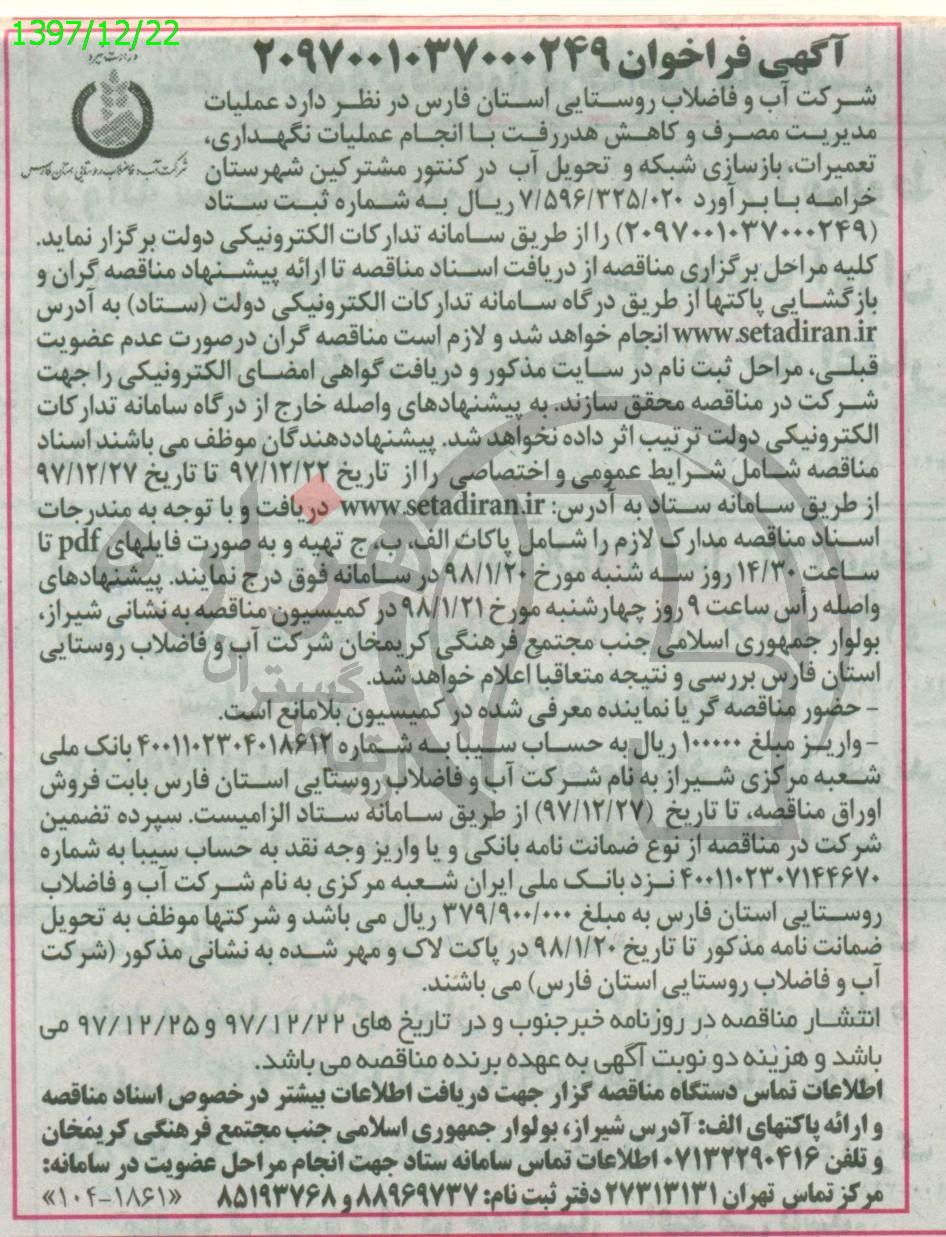 1397/12/22
آگهی فراخوان ۲۰۹۷۰۰۱۰۳۷۰۰۰۲۴۹
وزارت نیرو
شرکت آب و فاضلاب روستایی استان فارس
شرکت آب و فاضلاب روستایی استان فارس در نظر دارد عملیات
مدیریت مصرف و کاهش هدررفت با انجام عملیات نگهداری،
تعمیرات، بازسازی شبکه و تحویل آب در کنتور مشترکین شهرستان
خرامه با برآورد ۷/۵۹۶/۳۲۵/۰۲۰ ریال به شماره ثبت ستاد
(۲۰۹۷۰۰۱۰۳۷۰۰۰۲۴۹) را از طریق سامانه تدارکات الکترونیکی دولت برگزار نماید.
کلیه مراحل برگزاری مناقصه از دریافت اسناد مناقصه تا ارائه پیشنهاد مناقصه گران و
بازگشایی پاکتها از طریق درگاه سامانه تدارکات الکترونیکی دولت (ستاد) به آدرس
www.setadiran.ir انجام خواهد شد و لازم است مناقصه گران درصورت عدم عضویت
قبلی، مراحل ثبت نام در سایت مذکور و دریافت گواهی امضای الکترونیکی را جهت
شرکت در مناقصه محقق سازند. به پیشنهادهای واصله خارج از درگاه سامانه تدارکات
الکترونیکی دولت ترتیب اثر داده نخواهد شد. پیشنهاددهندگان موظف می باشند اسناد
مناقصه شامل شرایط عمومی و اختصاصی را از تاریخ ۹۷/۱۲/۲۲ تا تاریخ ۹۷/۱۲/۲۷
از طریق سامانه ستاد به آدرس: www.setadiran.ir دریافت و با توجه به مندرجات
اسناد مناقصه مدارک لازم را شامل پاکات الف، ب، ج تهیه و به صورت فایلهای pdf تا
ساعت ۱۴/۳۰ روز سه شنبه مورخ ۹۸/۱/۲۰ در سامانه فوق درج نمایند. پیشنهادهای
واصله رأس ساعت ۹ روز چهارشنبه مورخ ۹۸/۱/۲۱ در کمیسیون مناقصه به نشانی شیراز،
بولوار جمهوری اسلامی جنب مجتمع فرهنگی کریمخان شرکت آب و فاضلاب روستایی
استان فارس بررسی و نتیجه متعاقبا اعلام خواهد شد.
- حضور مناقصه گر یا نماینده معرفی شده در کمیسیون بلامانع است.
- واریز مبلغ ۱۰۰۰۰۰ ریال به حساب سیبا به شماره ۴۰۰۱۱۰۲۳۰۴۰۱۸۶۱۲ بانک ملی
شعبه مرکزی شیراز به نام شرکت آب و فاضلاب روستایی استان فارس بابت فروش
اوراق مناقصه، تا تاریخ (۹۷/۱۲/۲۷) از طریق سامانه ستاد الزامیست. سپرده تضمین
شرکت در مناقصه از نوع ضمانت نامه بانکی و یا واریز وجه نقد به حساب سیبا به شماره
۴۰۰۱۱۰۲۳۰۷۱۴۴۶۷۰ نزد بانک ملی ایران شعبه مرکزی به نام شرکت آب و فاضلاب
روستایی استان فارس به مبلغ ۳۷۹/۹۰۰/۰۰۰ ریال می باشد و شرکتها موظف به تحویل
ضمانت نامه مذکور تا تاریخ ۹۸/۱/۲۰ در پاکت لاک و مهر شده به نشانی مذکور (شرکت
آب و فاضلاب روستایی استان فارس) می باشند.
انتشار مناقصه در روزنامه خبرجنوب و در تاریخ های ۹۷/۱۲/۲۲ و ۹۷/۱۲/۲۵ می
باشد و هزینه دو نوبت آگهی به عهده برنده مناقصه می باشد.
اطلاعات تماس دستگاه مناقصه گزار جهت دریافت اطلاعات بیشتر درخصوص اسناد مناقصه
و ارائه پاکتهای الف: آدرس شیراز، بولوار جمهوری اسلامی جنب مجتمع فرهنگی کریمخان
و تلفن ۰۷۱۳۲۲۹۰۴۱۶ اطلاعات تماس سامانه ستاد جهت انجام مراحل عضویت در سامانه:
مرکز تماس تهران ۲۷۳۱۳۱۳۱ دفتر ثبت نام: ۸۸۹۶۹۷۳۷ و ۸۵۱۹۳۷۶۸ «۱۰۴-۱۸۶۱»
هزاره
گستران